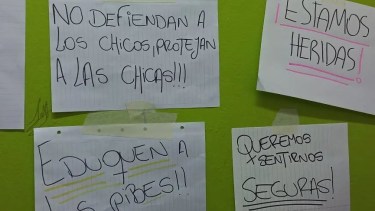 NO DEFIENDAN A
LOS CHICOS, ¡PROTEJAN
A LAS CHICAS!!!
¡ESTAMOS
HERIDAS!
EDUQUEN A
LOS PIBES!!
QUEREMOS
SENTIRNOS
SEGURAS!